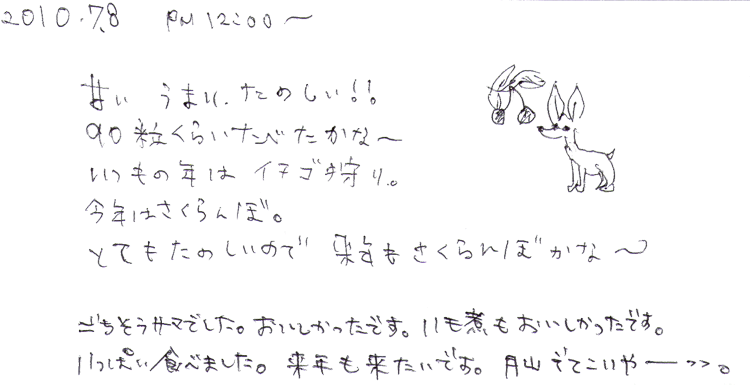 2010.7.8 PM 12:00〜
甘い うまい、たのしい!!
90粒くらいたべたかな〜
いつもの年は イチゴ狩り。
今年はさくらんぼ。
とてもたのしいので 来年もさくらんぼかな〜
ごちそうサマでした。おいしかったです。いも煮もおいしかったです。
いっぱい食べました。来年も来たいです。月山でてこいやーッ。